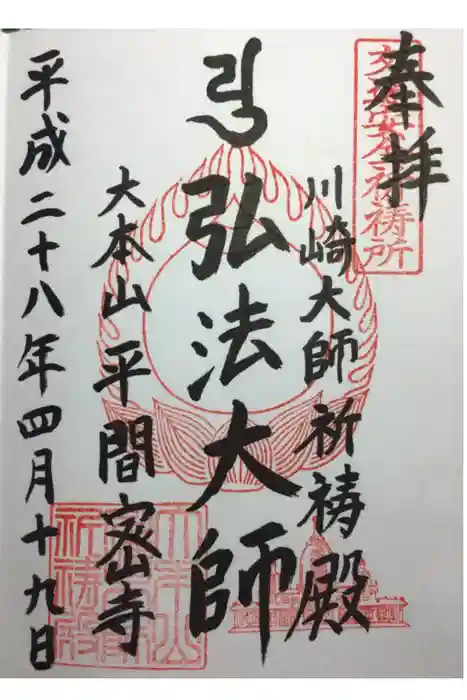 奉拝
交通安全祈祷所
川崎大師 祈祷殿
弘法大師
大本山 平間密寺
平成二十八年四月十九日